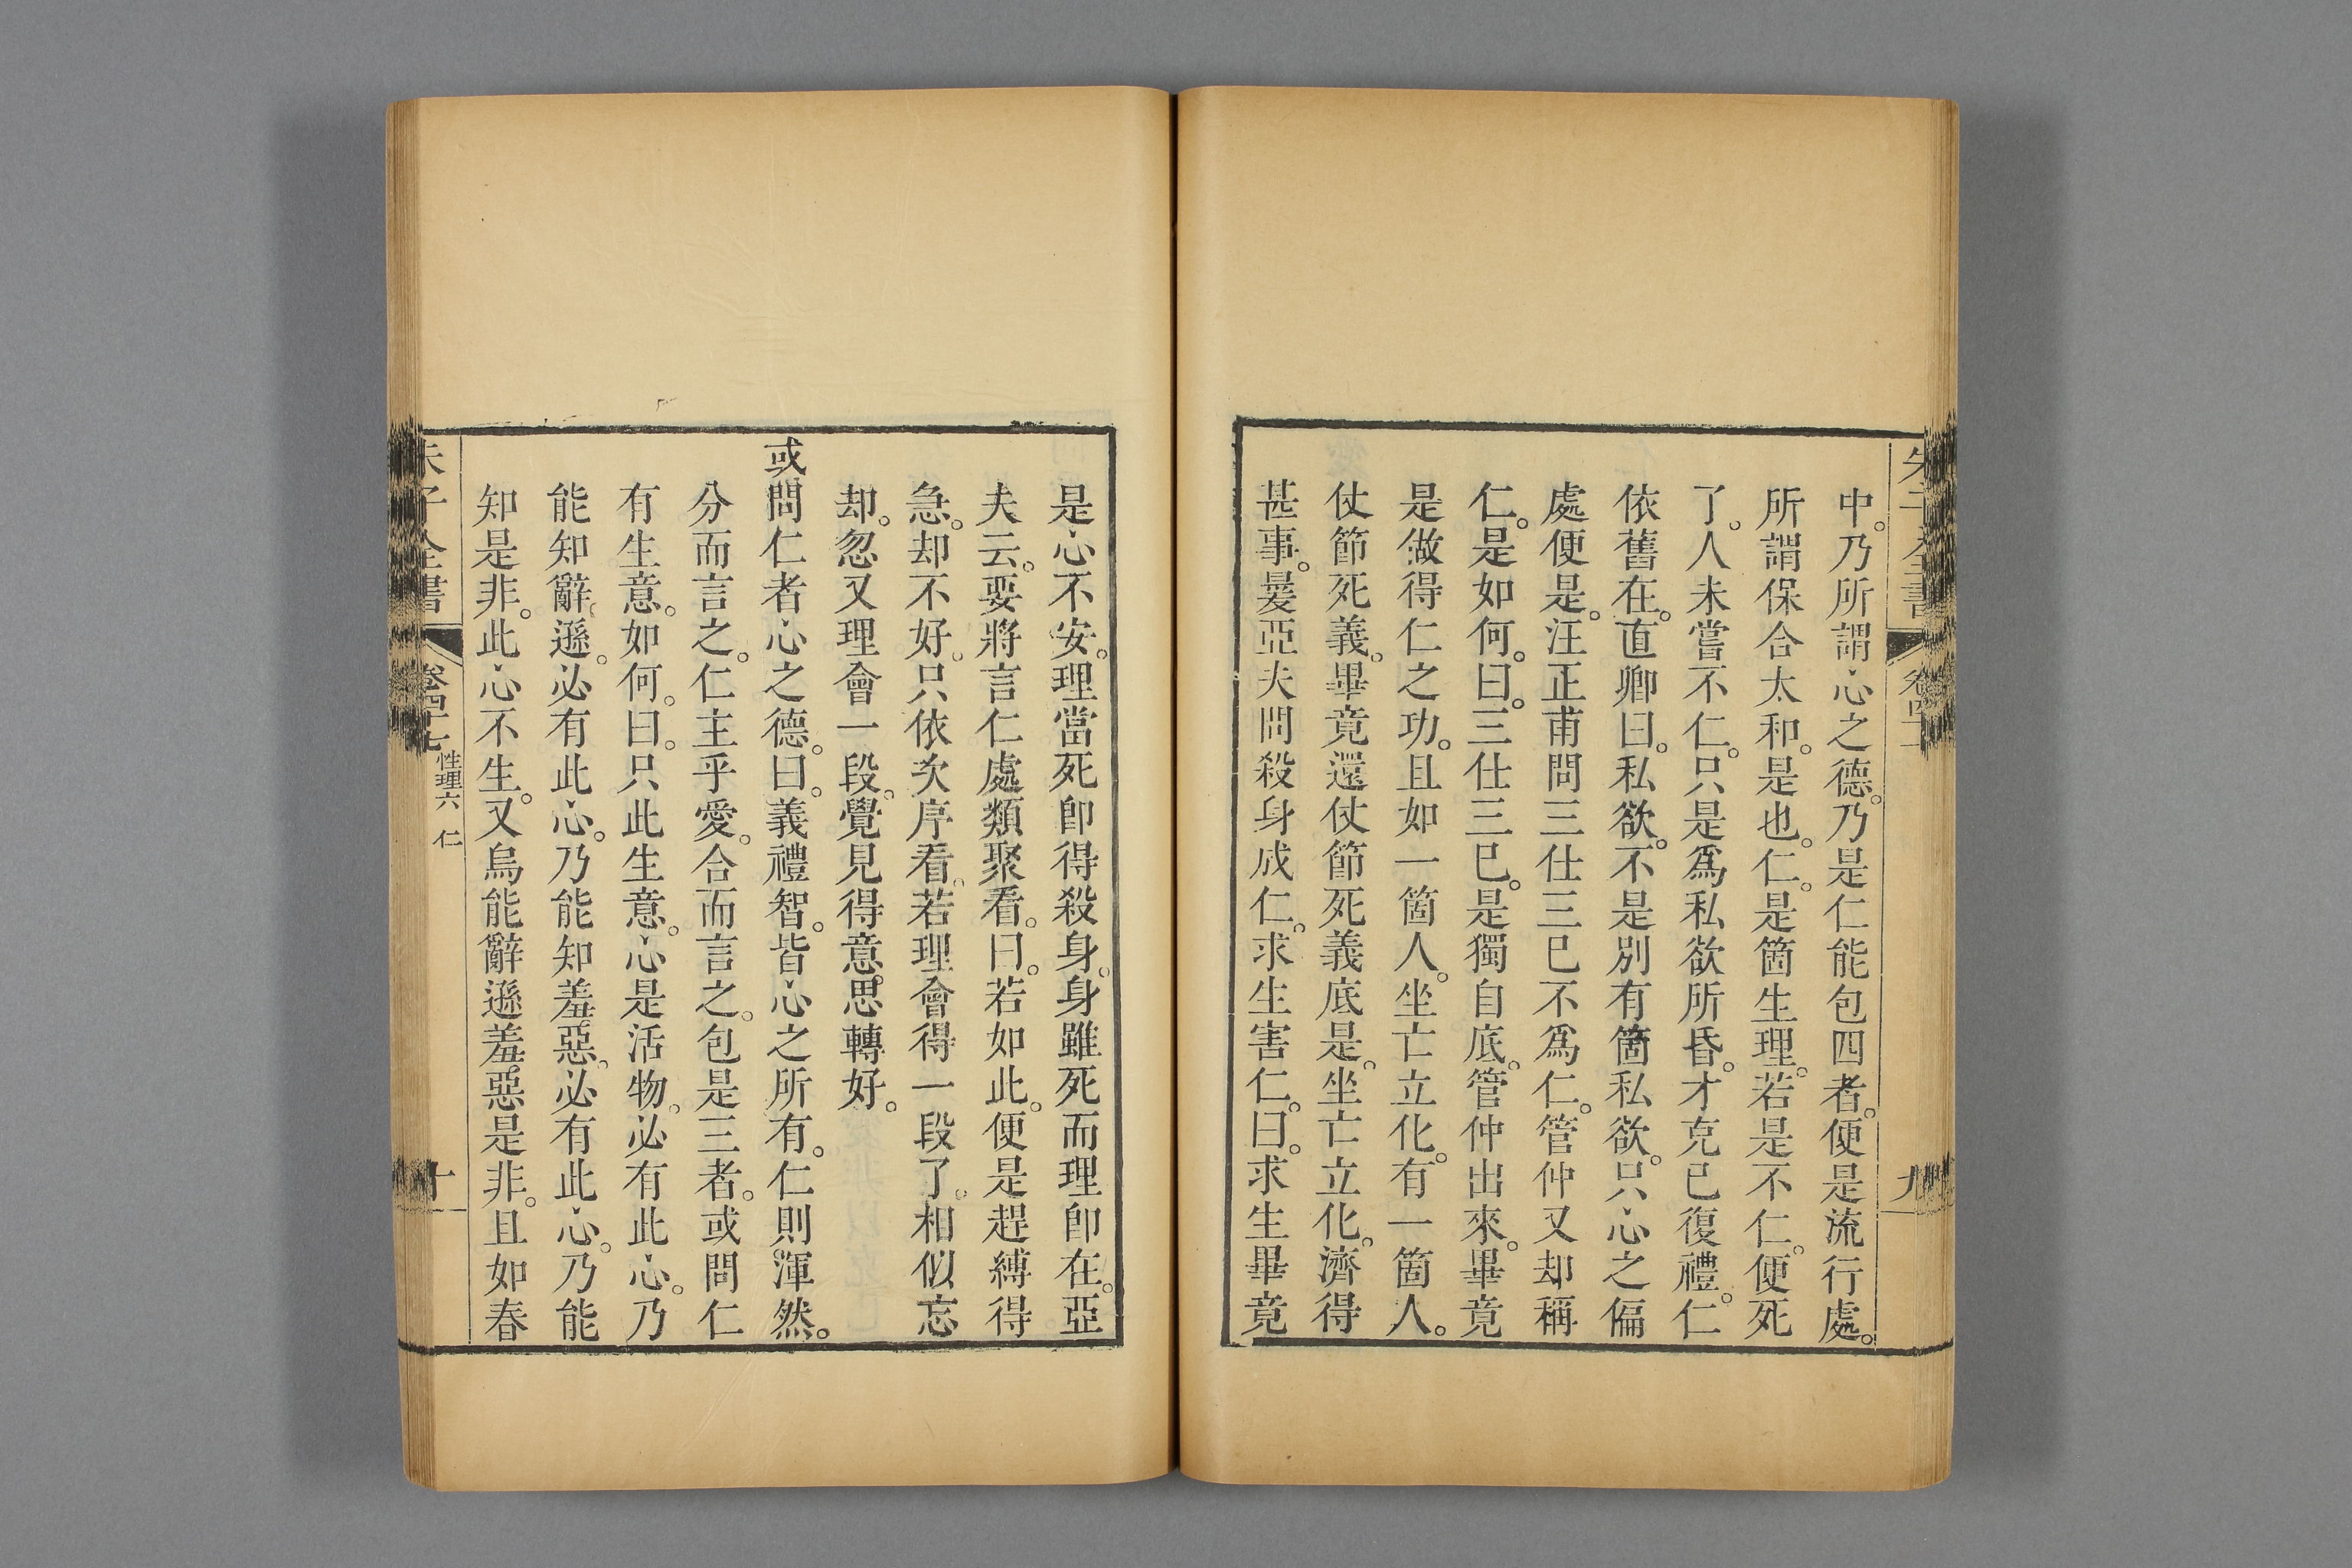 中。乃所謂心之德。乃是仁能包四者。便是流行處。
所謂保合太和。是也。仁。是箇生理。若是不仁。便死
了。人未嘗不仁。只是爲私欲所昏。才克己復禮。仁
依舊在。直卿曰。私欲。不是別有箇私欲。只心之偏
處便是。汪正甫問三仕三已不爲仁。管仲又却稱
仁。是如何。曰。三仕三已。是獨自底。管仲出來。畢竟
是做得仁之功。且如一箇人。坐亡立化。有一箇人。
仗節死義。畢竟還仗節死義底是。坐亡立化。濟得
甚事。㬊亞夫問殺身成仁。求生害仁。曰。求生畢竟
是心不安。理當死卽得殺身。身雖死而理卽在。亞
夫云。要將言仁處類聚看。曰。若如此。便是趕縛得
急。却不好。只依次序看。若理會得一段了。相似忘
却。忽又理會一段。覺見得意思轉好。
或問仁者心之德。曰。義禮智。皆心之所有。仁則渾然。
分而言之。仁主乎愛。合而言之。包是三者。或問仁
有生意。如何。曰。只此生意。心是活物。必有此心。乃
能知辭遜。必有此心。乃能知羞惡。必有此心。乃能
知是非。此心不生。又烏能辭遜羞惡是非。且如春
朱子全書
卷四十七
性理六 仁
十